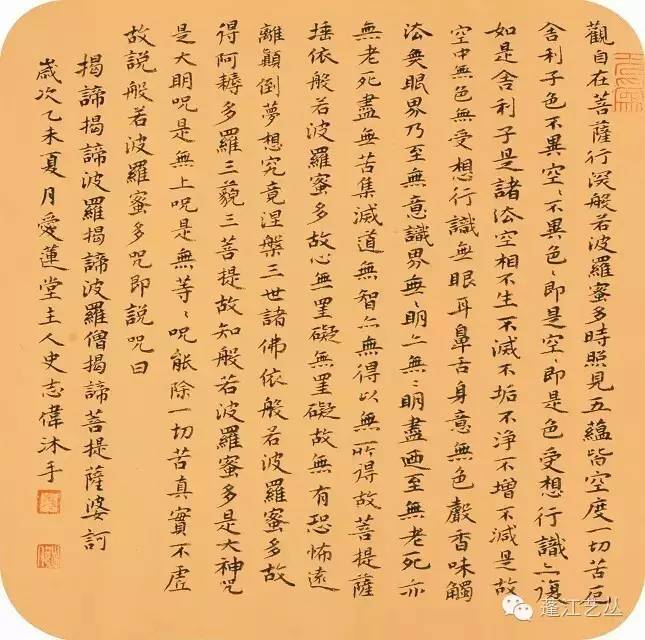 觀自在菩薩行深般若波羅蜜多時照見五蘊皆空度一切苦厄
舍利子色不異空、不異色、即是空、即是色受想行識亦復
如是舍利子是諸法空相不生不滅不垢不淨不增不減是故
空中無色無受想行識無眼耳鼻舌身意無色聲香味觸
法無眼界乃至無意識界無、明亦無、明盡迺至無老死亦
無老死盡無苦集滅道無智亦無得以無所得故菩提薩
埵依般若波羅蜜多故心無罣礙無罣礙故無有恐怖遠
離顛倒夢想究竟涅槃三世諸佛依般若波羅蜜多故
得阿耨多羅三藐三菩提故知般若波羅蜜多是大神咒
是大明咒是無上咒是無等、咒能除一切苦真實不虛
故說般若波羅蜜多咒即說咒曰
揭諦揭諦波羅揭諦波羅僧揭諦菩提薩婆訶
歲次乙未夏月愛蓮堂主人史志偉沐手
蓬江艺丛